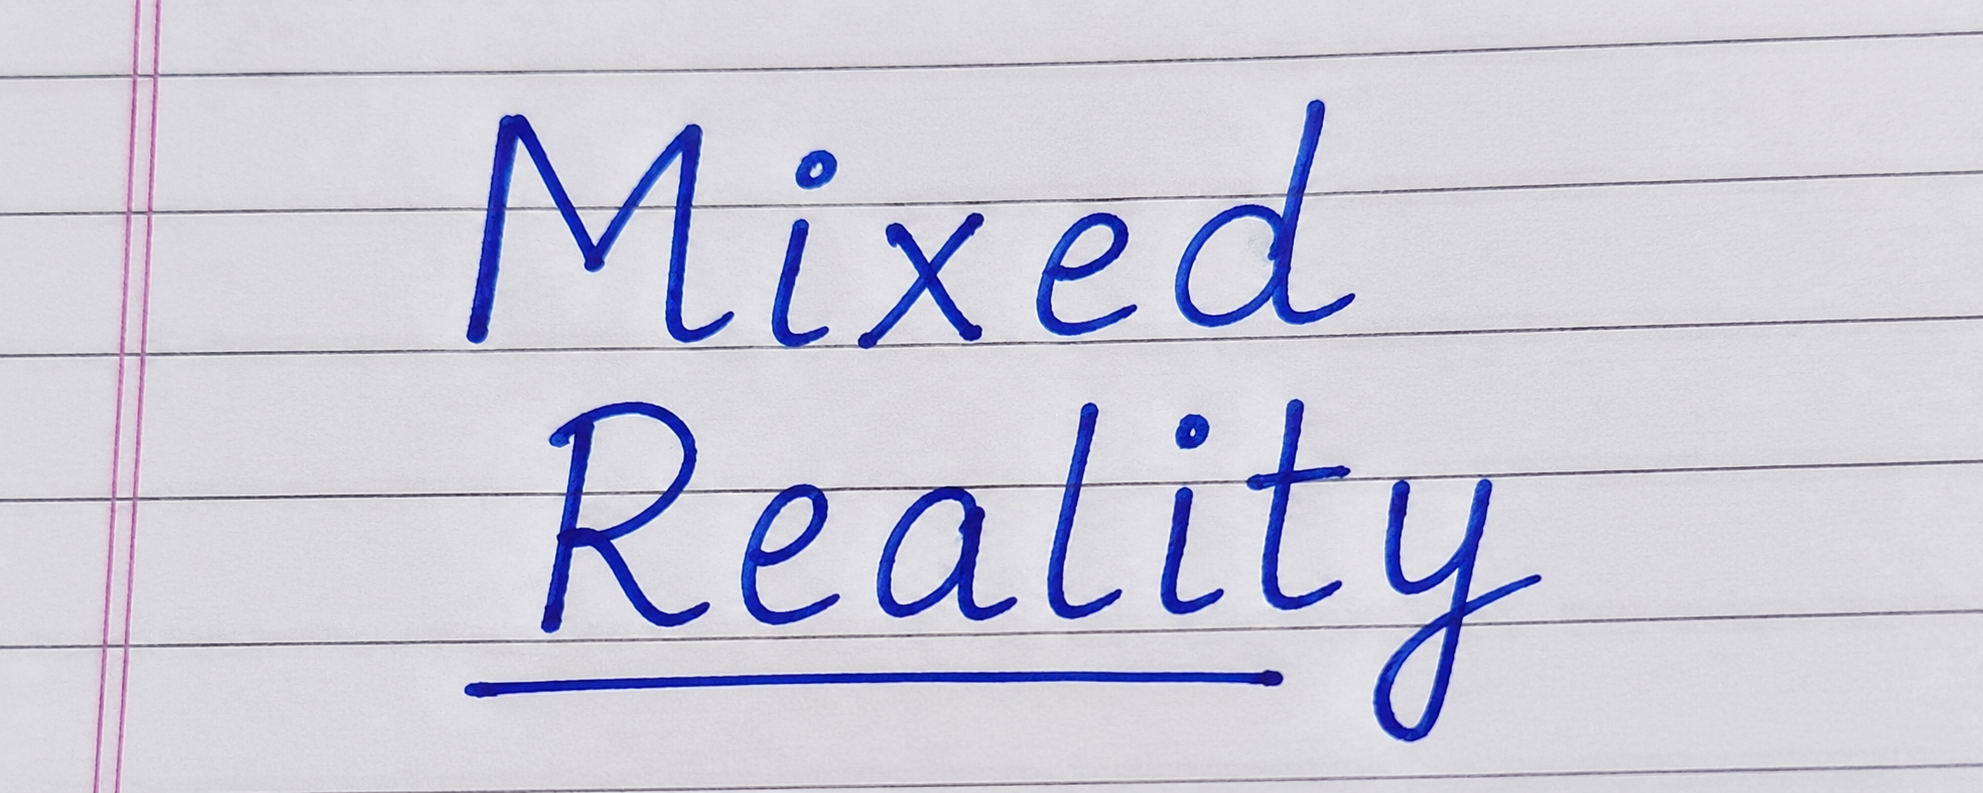 Mixed
Reality